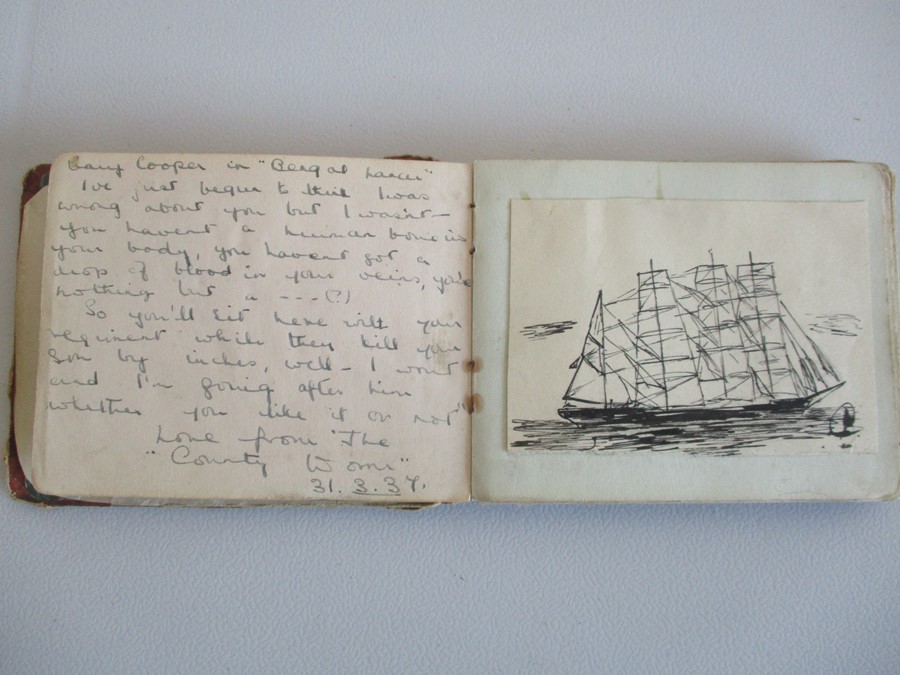 Gary Cooper in "Bengal Lancer"
I've just begun to think I was
wrong about you but I wasn't –
you havent a human bone in
your body, you havent got a
drop of blood in your veins, you're
nothing but a --- (?)
So you'll sit here with your
regiment while they kill your
son by inches, well – I wont
and I'm going after him
whether you like it or not"
Love from The
"County Worm"
31.3.37.